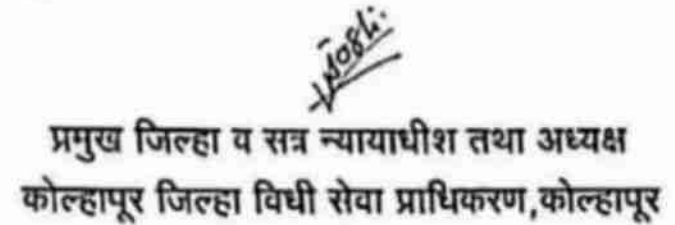 प्रमुख जिल्हा व सत्र न्यायाधीश तथा अध्यक्ष
कोल्हापूर जिल्हा विधी सेवा प्राधिकरण,कोल्हापूर